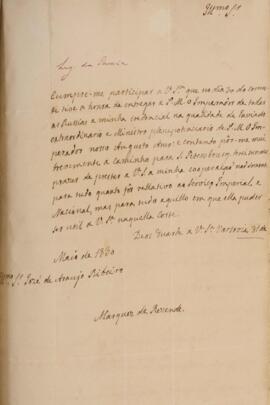 Illmo Sr
Cumpre-me participar a V. Sa. que no dia 30 do corre
tive a honra de entregar a S. M. O Imperador de todas
as Russias a minha credencial na qualidade de Enviado
extraordinario e Ministro plenipotenciario de S. M. O Im-
perador nosso Augusto Amo; e contanto pôr-me mui
brevemente a caminho para S. Petersbourg, terei summo
prazer de prestar a V. S. a minha cooperação não somente
para tudo quanto for rellativo ao Serviço Imperial, e
Nacional, mas para tudo aquillo em que ella puder
ser util a V. Sa. naquella Corte.
Deos Guarde a V. Sa. Varsovia 31 de
Maio de 1830
Illmo Sr. José de Araujo Ribeiro
Marquez de Rezende.